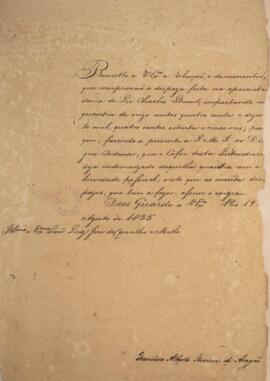 Remetto a V. Exª a relação, e documentos,
que comprovão a despeza feita na aposenta
doria de Sir Charles Stuart, importando na
quantia de onze contos quatro centos e dezoi
to mil, quatro centos setenta e cinco reis; pa
que, fazendo-a presente a S. M. I. Se Di
gne Ordenar, que o Cofre desta Intendencia
seja indemnizado daquella quantia com a
brevidade possivel, visto que as muitas des
pezas, que tem a fazer, assim o exigem.
Deos Guarde a V. Exª Rio 19
Agosto de 1825
Illmo e Exmo Senr Luiz José de Carvalho e Mello
Francisco Alberto Teixeira de Aragão